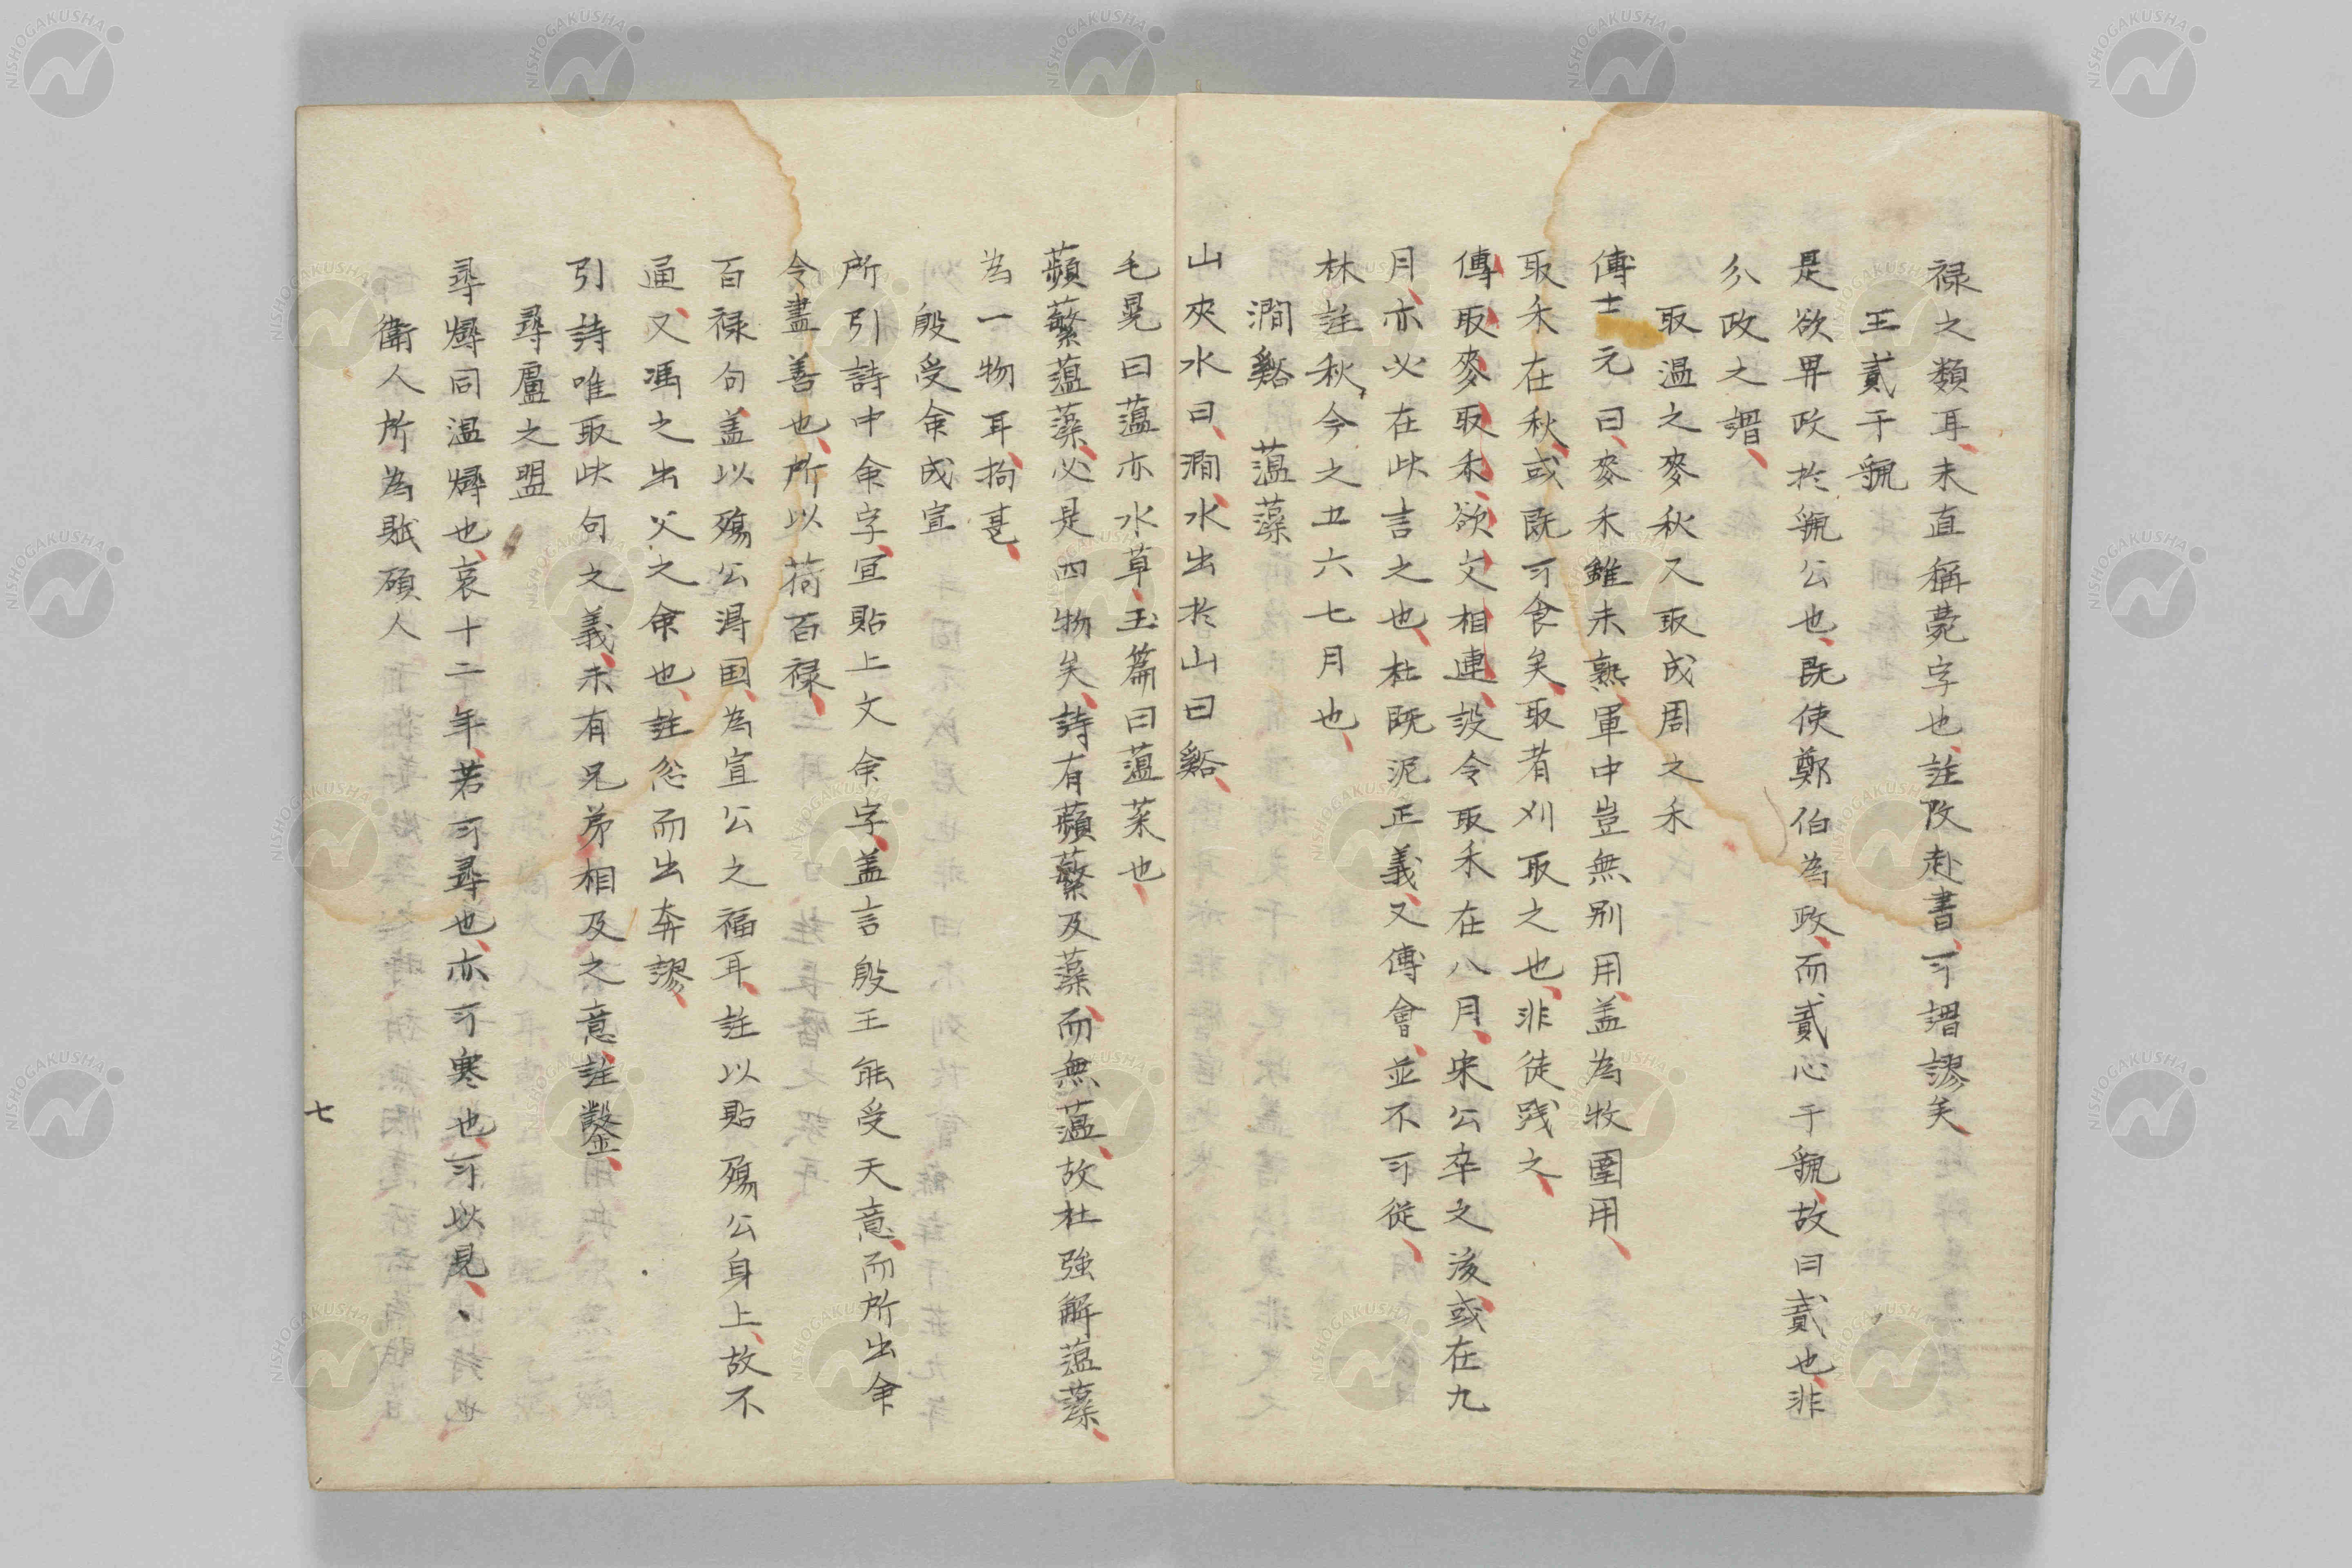 禄之類耳、未直稱薨字也、註改赴書、可謂謬矣、
王貳于虢
是欲畀政於虢公也、既使鄭伯為政、而貳心于虢、故曰貳也、非
分政之謂、
取温之麥秋又取成周之禾
傅士元曰、麥禾雖未熟、軍中豈無別用、盖為牧圉用、
取禾在秋、或既可食矣、取者刈取之也、非徒踐之、
傳取麥取禾、欲文相連、設令取禾在八月、宋公卒之後、或在九
月、亦必在此言之也、杜既泥正義、又傅會、並不可從、
林註秋、今之五六七月也、
澗谿　薀藻
山夾水曰、澗、水出於山曰谿、
毛晃曰薀亦水草、玉篇曰薀菜也、
蘋蘩薀藻、必是四物矣、詩有蘋蘩及藻、而無薀、故杜強解薀藻、
為一物耳、拘甚、
殷受命咸宜
所引詩中命字、宜貼上文命字、盖言殷王能受天意、而所出命
令盡善也、所以荷百禄、
百禄句盖以殤公淂国、為宣公之福耳、註以貼殤公身上、故不
通、又馮之出父之命也、註忿而出奔謬、
引詩唯取此句之義、未有兄弟相及之意、註鑿、
尋盧之盟
尋燖同温燖也、哀十二年、若可尋也、亦可寒也、可以見、、
衛人所為賦碩人
七
NISHOGAKUSHA